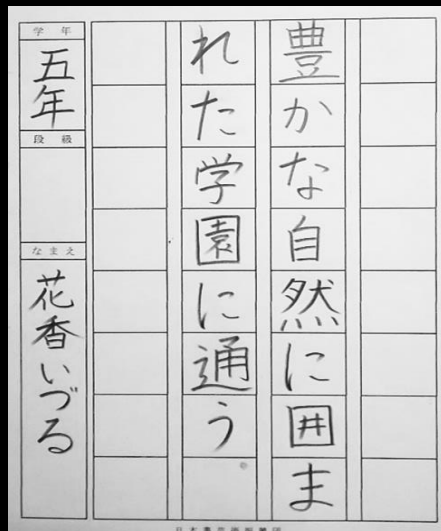 豊かな自然に囲ま
れた学園に通う
学年
五年
段級
なまえ
花香いづる